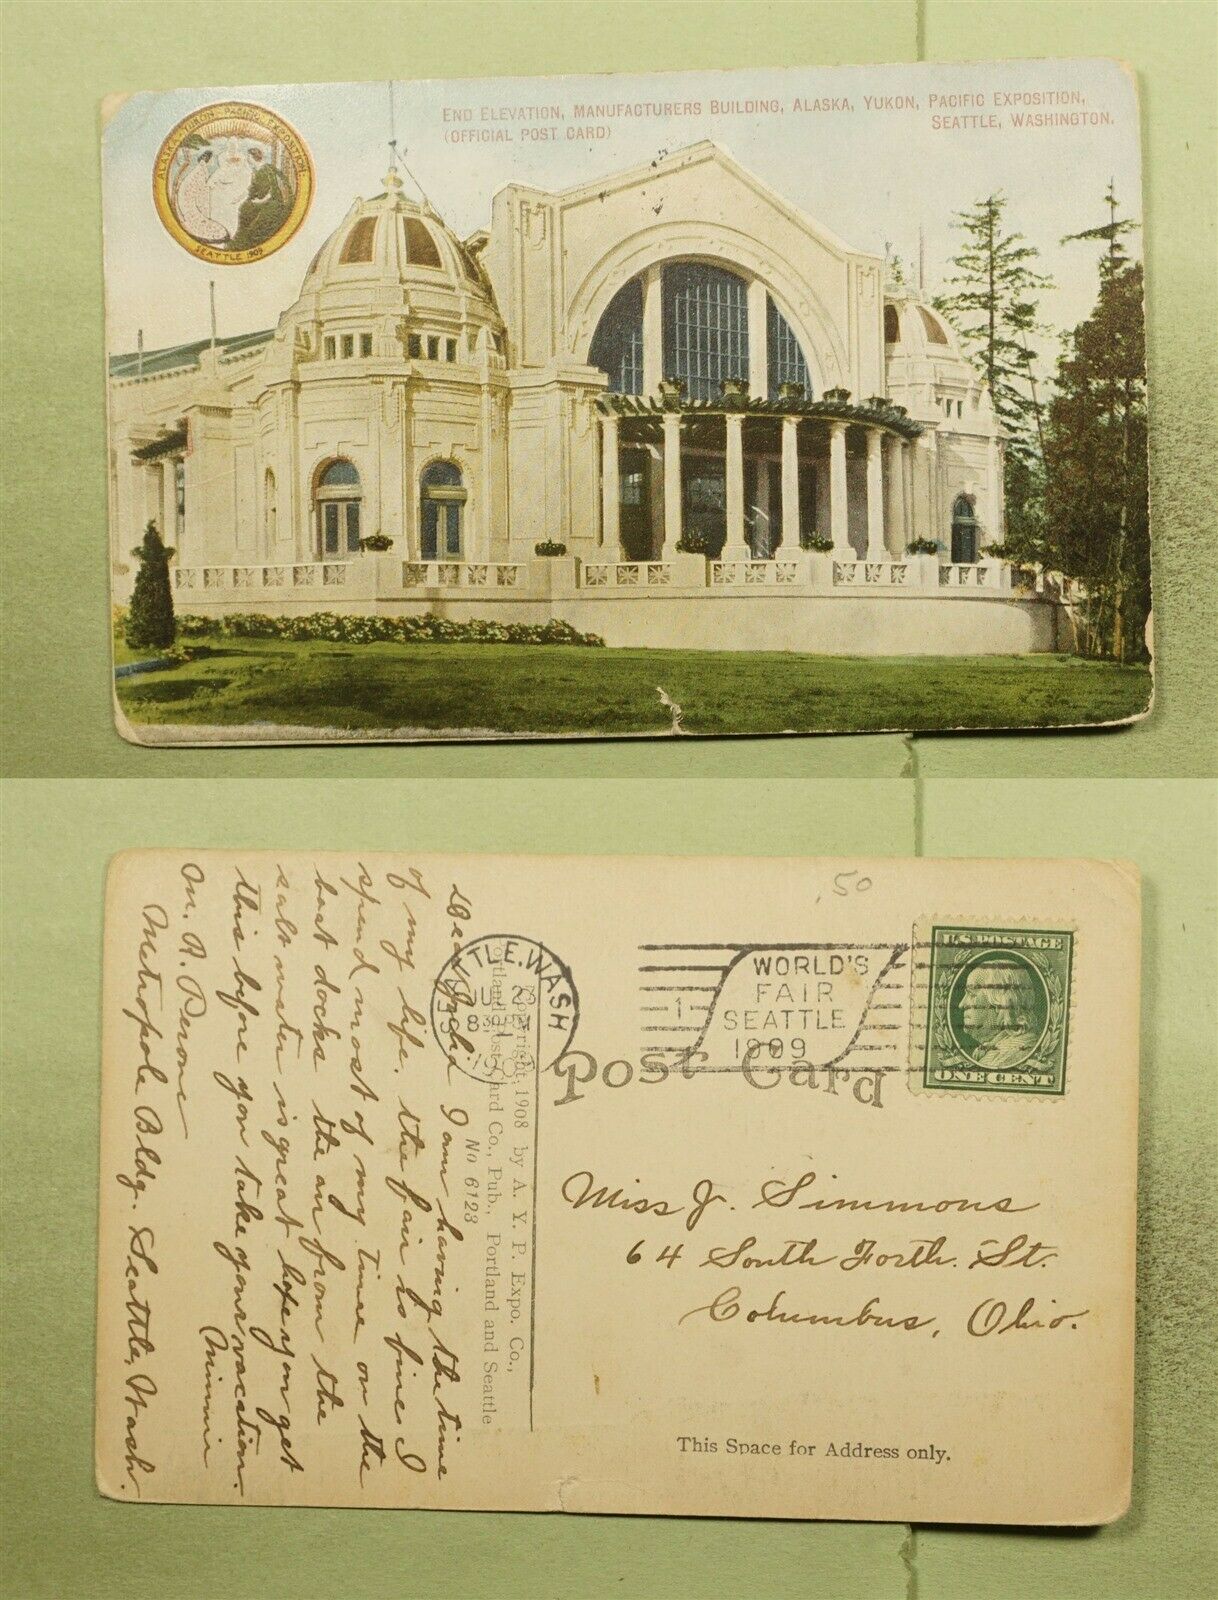 END ELEVATION, MANUFACTURERS BUILDING, ALASKA, YUKON, PACIFIC EXPOSITION,
(OFFICIAL POST CARD) SEATTLE, WASHINGTON.
ALASKA-YUKON-PACIFIC EXPOSITION.
SEATTLE 1909
.50
TLE. WASH
8 30
1
WORLD'S
FAIR
SEATTLE
1909
U.S. POSTAGE
ONE CENT
Post Card
Copyright, 1908 by A. Y. P. Expo. Co.,
Portland Post Card Co., Pub., Portland and Seattle
No 6123
Miss J. Simmons
64 South Forth. St.
Columbus, Ohio.
This Space for Address only.
Dear I am having the time
of my life. the fair is fine I
spend most of my time on the
boat docks the air from the
salt water is great hope you get
this before you take your vacation.
Minnie
M. A.
Metropole Bldg. Seattle, Wash.